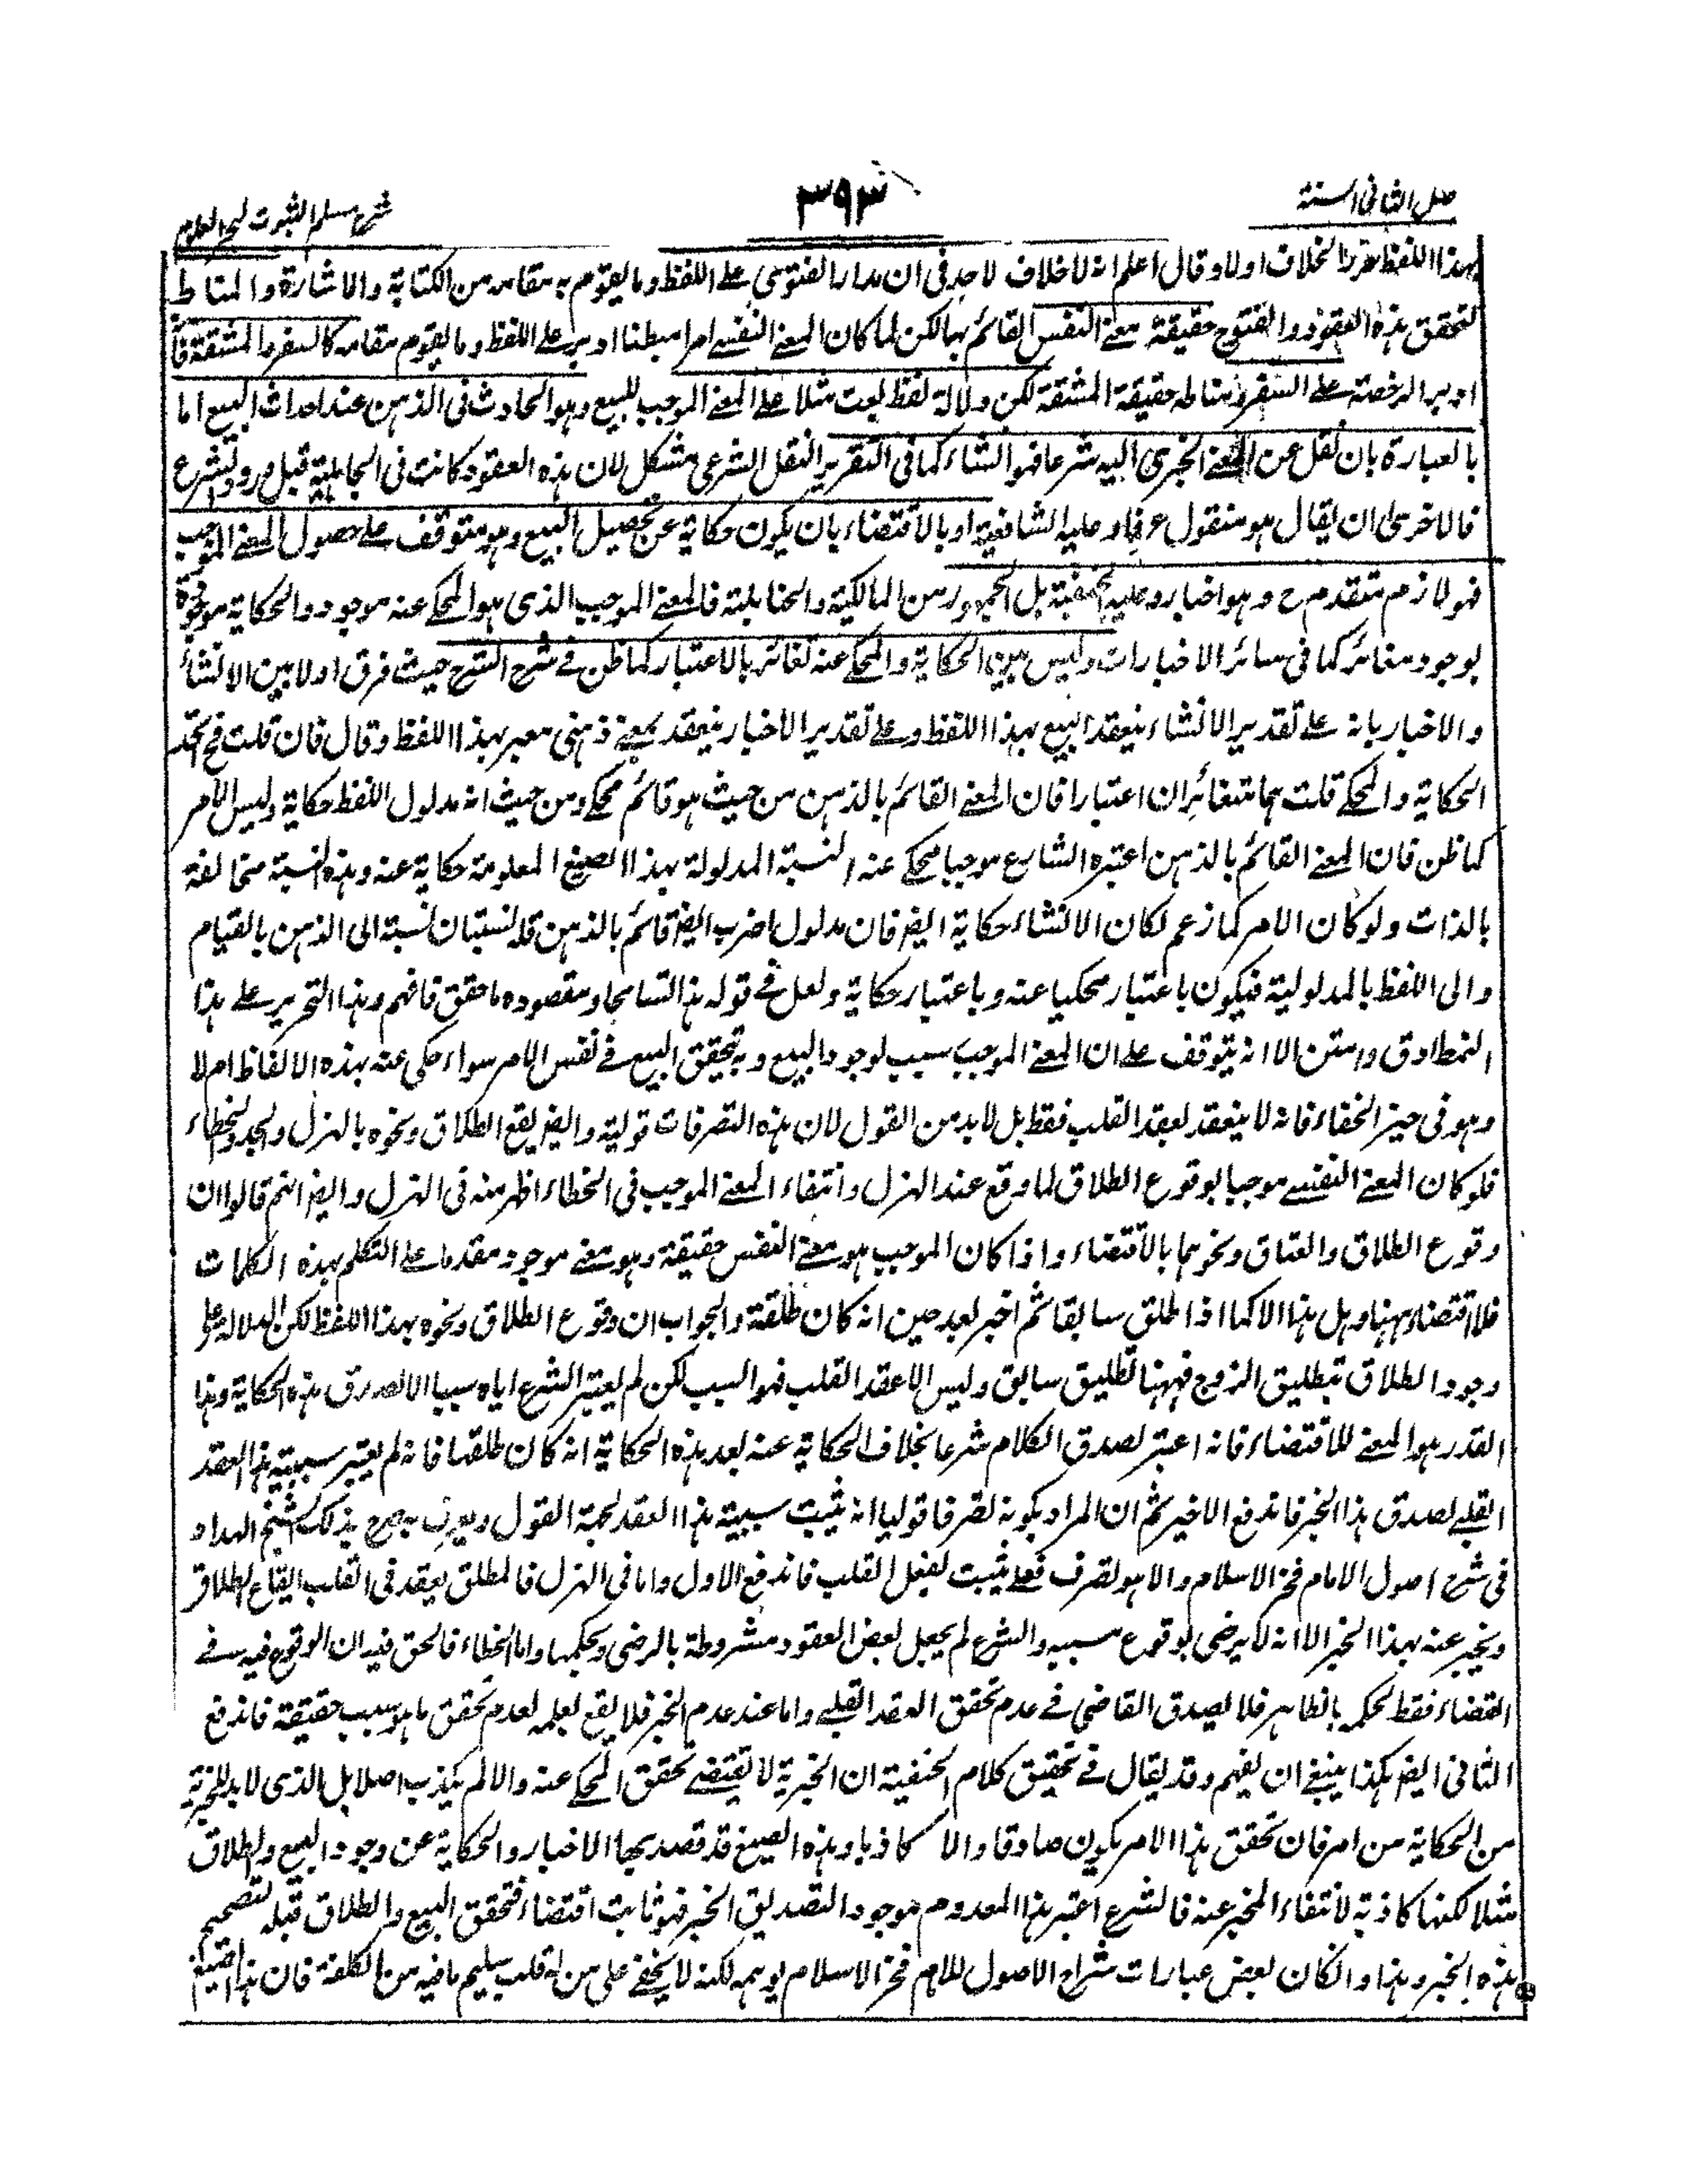 صل الثانی السنة
٣٩٣
شرح مسلم الثبوت لبحر العلوم
بهذا اللفظ حرر الخلاف اولا وقال اعلم انه لا خلاف لاحد فى ان مدار الفتوى على اللفظ وما يقوم به مقامه من الكتابة والاشارة والمناط
لتحقق هذه العقود والفتوح حقيقة معنى النفس القائم بها لكن لما كان المعنى النفسى امرا مبطنا ادير على اللفظ وما يقوم مقامه كالسفر والمشقة فا
ادير الرخصة على السفر ومناطه حقيقة المشقة لكن دلالة لفظ بعت مثلا على المعنى الموجب للبيع وهو الحادث فى الذهن عند احداث البيع اما
بالعبارة بان نقل عن المعنى الخبرى اليه شرعا فهو انشاء كما فى التقرير النقل الشرعى مشكل لان هذه العقود كانت فى الجاهلية قبل ورود الشرع
فالاحرى ان يقال هو منقول عرفا وعليه الشافعية او بالاقتضاء بان يكون حكاية عن تحصيل البيع وهو متوقف على حصول المعنى الموجب
فهو لازم متقدم ح وهو اخبار وعليه الحنفية بل الجمهور من المالكية والحنابلة فالمعنى الموجب الذى هو المحكى عنه موجود والحكاية موجودة
بوجود مغائر كما فى سائر الاخبارات وليس بين الحكاية والمحكى عنه تغائر بالاعتبار كما ظن فى شرح الشرح حيث فرق اولا بين الانشاء
والاخبار بانه على تقدير الانشاء ينعقد البيع بهذا اللفظ وعلى تقدير الاخبار ينعقد بمعنى ذهنى معبر بهذا اللفظ وقال فان قلت فح اتحد
الحكاية والمحكى قلت هما متغائران اعتبارا فان المعنى القائم بالذهن من حيث هو قائم محكى ومن حيث انه مدلول اللفظ حكاية وليس الامر
كما ظن فان المعنى القائم بالذهن اعتبره الشارع موجبا محكى عنه والنسبة المدلولة بهذا الصيغ المعلومة حكاية عنه وهذه النسبة متخالفة
بالذات ولو كان الامر كما زعم لكان الانشاء حكاية ايضر فان مدلول اضرب ايضر قائم بالذهن فله نسبتان نسبة الى الذهن بالقيام
والى اللفظ بالمدلولية فيكون باعتبار محكيا عنه وباعتبار حكاية ولعل فى قوله هذا التسامحا ومقصوده ما حقق فافهم وهذا التحرير على هذا
النمط ادق وامتن الا انه يتوقف على ان المعنى الموجب سبب لوجود البيع وبه تحقق البيع فى نفس الامر سواء حكى عنه بهذه الالفاظ ام لا
وهو فى حيز الخفاء فانه لا ينعقد لعقد القلب فقط بل لابد من القول لان هذه التصرفات قولية وايضر يقع الطلاق ونحوه بالهزل والجد والخطاء
فلو كان المعنى النفسى موجبا لوقوع الطلاق لما وقع عند الهزل وانتفاء المعنى الموجب فى الخطاء اظهر منه فى الهزل وايضر انهم قالوا ان
وقوع الطلاق والعتاق ونحوهما بالاقتضاء واذا كان الموجب هو معنى النفس حقيقة وهو معنى موجود مقدما على التكلم بهذه الكلمات
فلا اقتضاء ههنا وهل هذا الا كما اذا طلق سابقا ثم اخبر بعد حين انه كان طلقة والجواب ان وقوع الطلاق ونحوه بهذا اللفظ لكن الدلالة على
وجود الطلاق بتطليق الزوج فههنا تطليق سابق وليس الا عقد القلب فهو السبب لكن لم يعتبر الشرع اياه سببا الا لصدق هذه الحكاية وهذا
القدر هو المعنى للاقتضاء فانه اعتبر لصدق الكلام شرعا بخلاف الحكاية عنه بعد هذه الحكاية انه كان طلقها فانه لم يعتبر سببية هذا العقد
القلبى لصدق هذا الخبر فاندفع الاخير ثم ان المراد بكونه تصرفا قوليا انه يثبت سببية هذا العقد لجهة القول وبه صرح بذلك الشيخ الهداد
فى شرح اصول الامام فخر الاسلام والا هو لتصرف فعلى يثبت لفعل القلب فاندفع الاول واما فى الهزل فالمطلق يعقد فى القلب ايقاع الطلاق
ويخبر عنه بهذا الخبر الا انه لا يرضى لوقوع مسببه والشرع لم يجعل بعض العقود مشروطة بالرضى وبحكمها واما الخطاء فالحق فيه ان الوقوع فيه فى
القضاء فقط لحكمه بالظاهر فلا يصدق القاضى فى عدم تحقق العقد القلبى واما عند عدم الخبر فلا يقع لعلمه لعدم تحقق ما هو سبب حقيقة فاندفع
الثانى ايضر هكذا ينبغى ان يفهم وقد يقال فى تحقيق كلام الحنفية ان الخبرية لا تقتضى تحقق المحكى عنه والا لم يكذب اصلا بل الذى لابد للخبرية
من الحكاية من امر فان تحقق هذا الامر يكون صادقا والا كاذبا وهذه الصيغ قد قصد بها الاخبار والحكاية عن وجود البيع والطلاق
مثلا لكنها كاذبة لانتفاء المخبر عنه فالشرع اعتبر هذا المعدوم موجودا لتصديق الخبر فهو ثابت اقتضاء فتحقق البيع والطلاق قبله لتصحيح
هذه الخبر وهذا وانكان بعض عبارات شراح الاصول للامام فخر الاسلام يوهمه لكنه لا يخفى على من له قلب سليم ما فيه من الكلفة فان هذا الصيغ